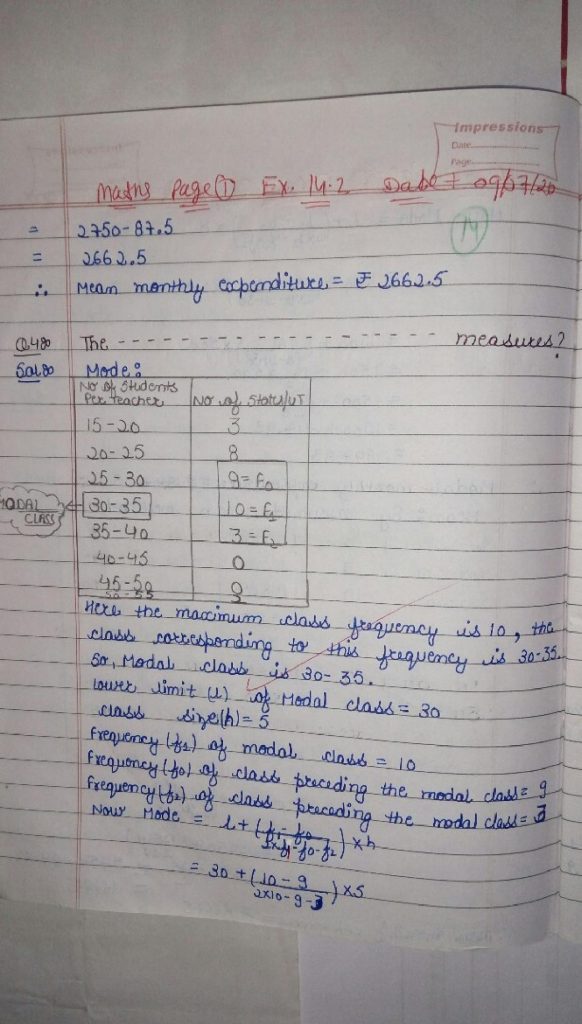 Impressions
Date
Page
Maths Page ① Ex. 14.2 Date + 09/07/20
14
= 2750-87.5
= 2662.5
∴ Mean monthly expenditure = ₹ 2662.5
Q.4:- The - - - - - - - - - - - - - - - - - - - measures?
Sol:- Mode:
No of Students Per teacher | No of States/UT
15-20 3
20-25 8
25-30 9=F0
MODAL CLASS 30-35 10=F1
35-40 3=F2
40-45 0
45-50 0
50-55 2
Here the maximum class frequency is 10, the
class corresponding to this frequency is 30-35.
So, Modal class is 30-35.
lower limit (l) of Modal class = 30
class size(h) = 5
frequency (f1) of modal class = 10
frequency (f0) of class preceding the modal class = 9
frequency (f2) of class preceding the modal class = 3
Now Mode = l + (f1-f0/2×f1-f0-f2) × h
= 30 + (10-9/2×10-9-3) × 5